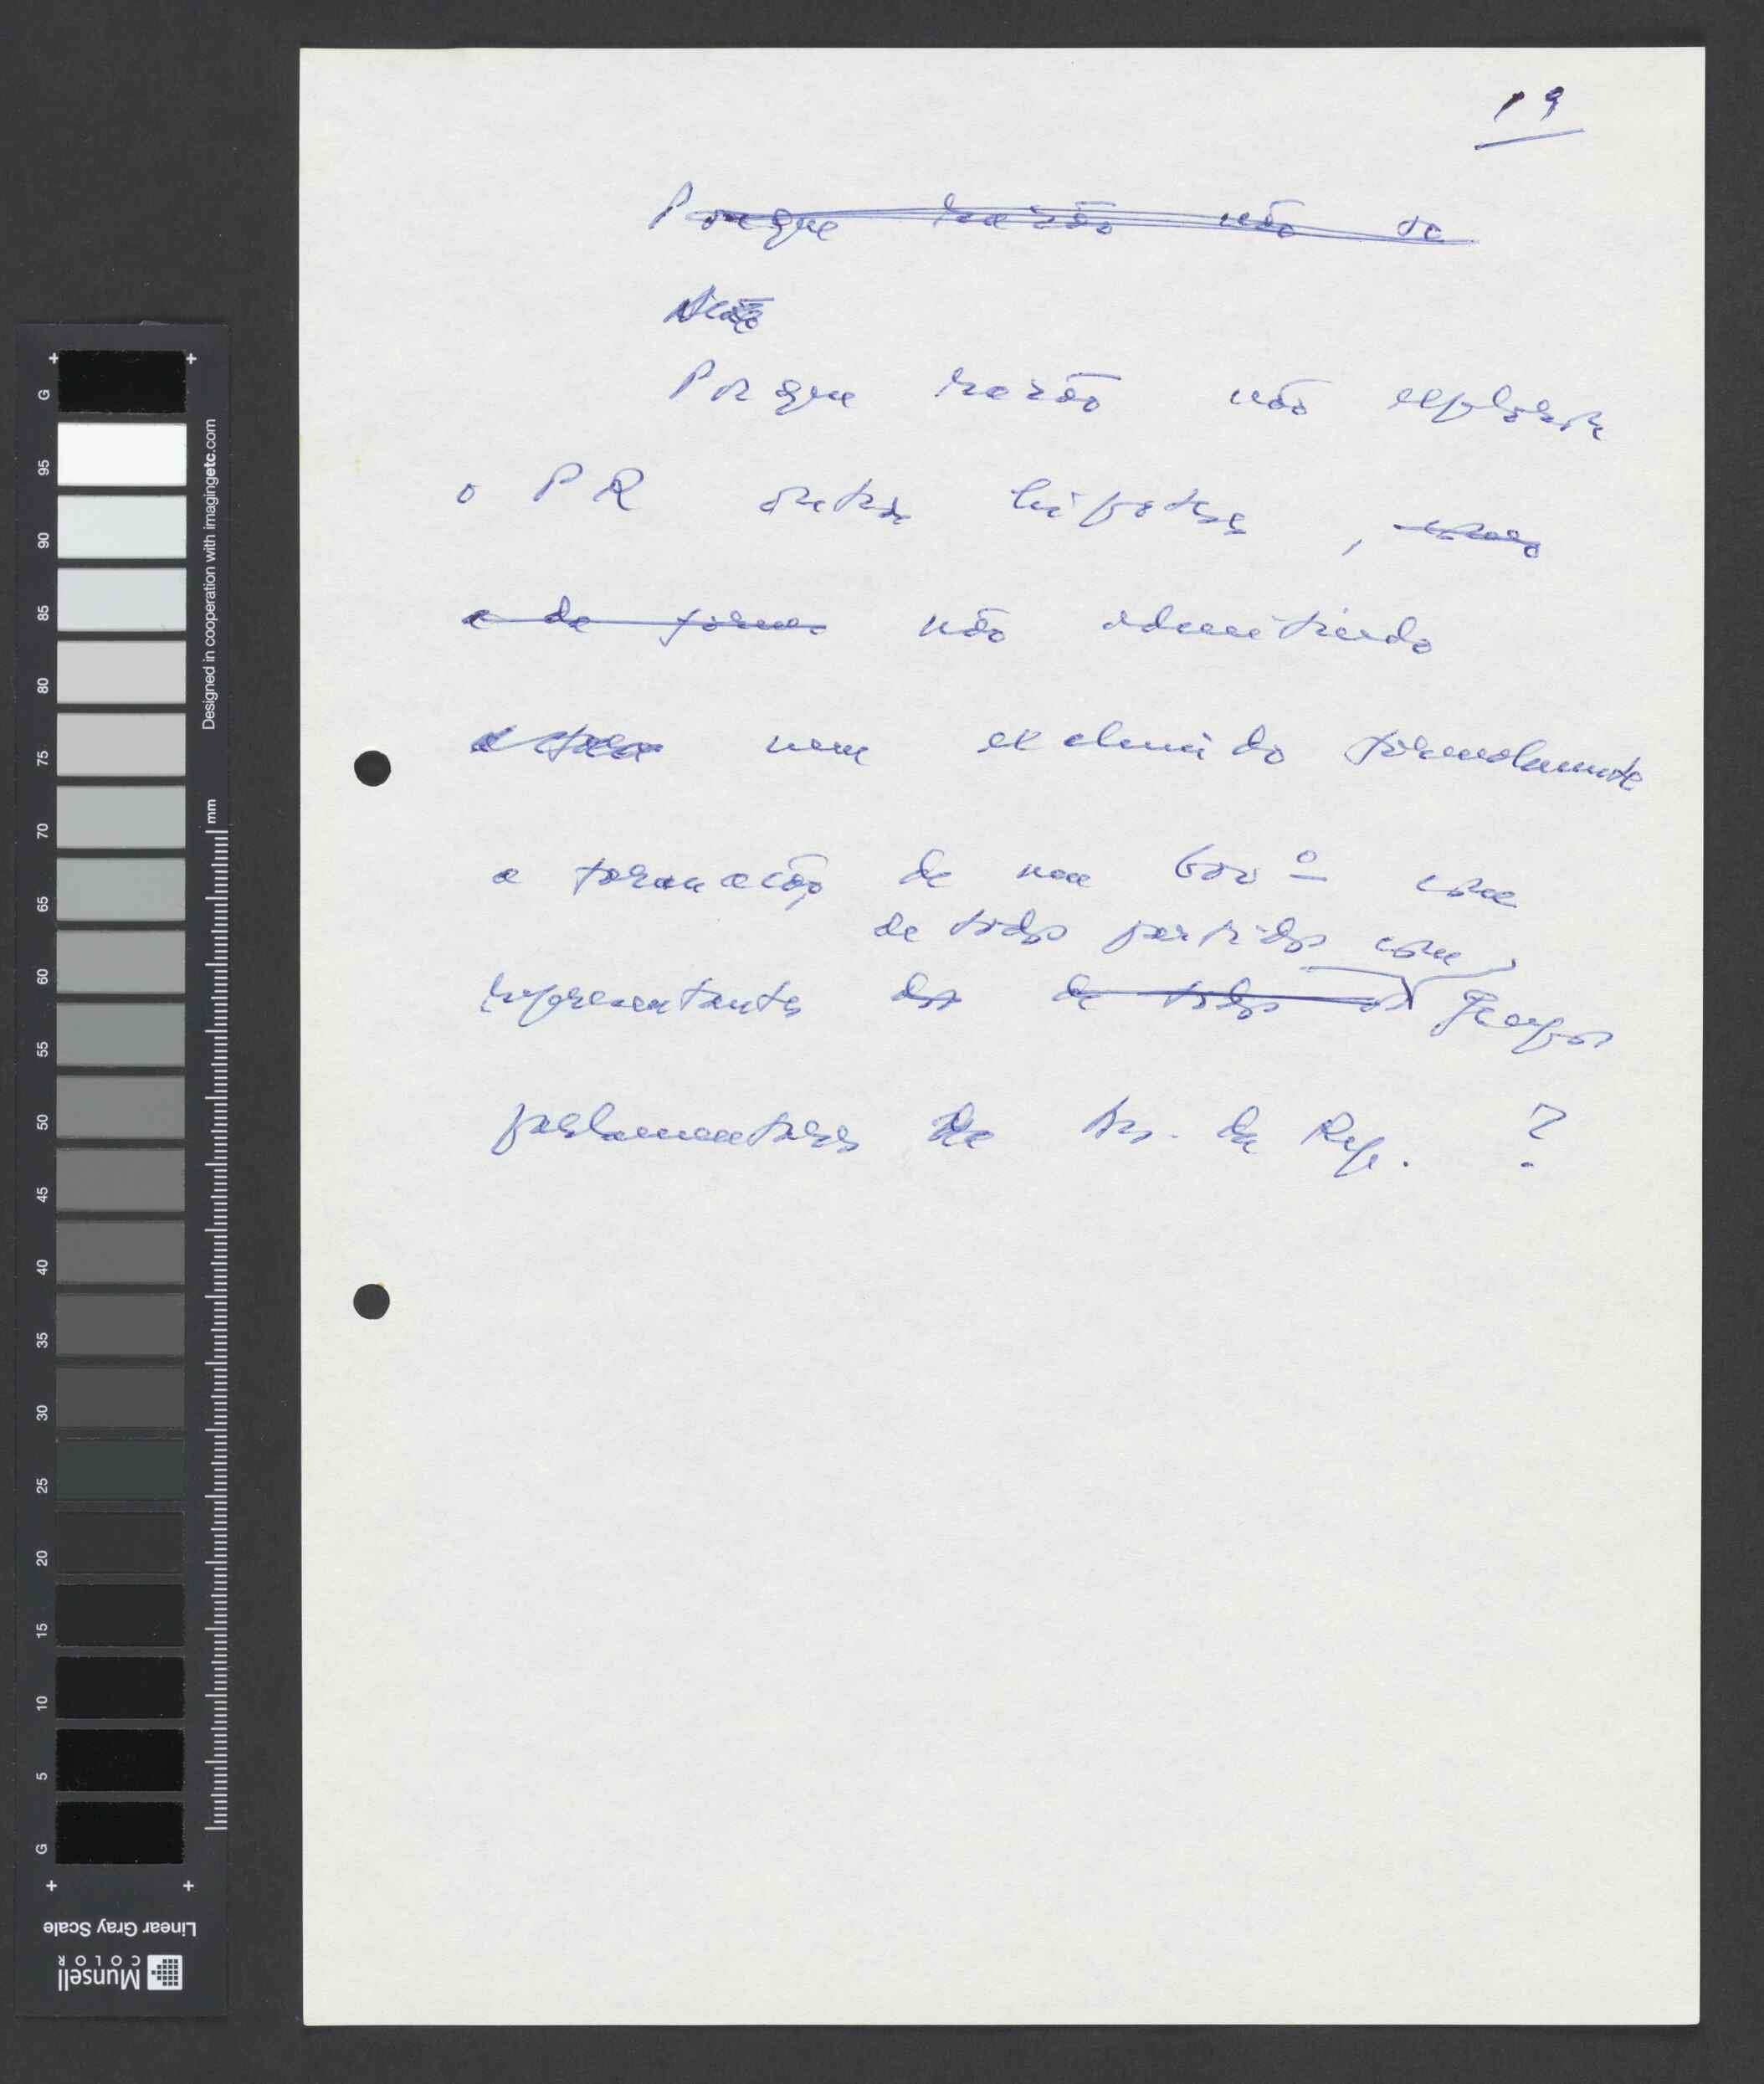 19
Porque razão não se
Porque razão não explorou
o PR outras hipóteses, como
a da forma não admitindo
nem excluindo formalmente
a formação de um Govº com
de todos partidos com
representantes dos de todos os grupos
parlamentares da Ass. da Rep. ?
G
95
90
85
80
75
70
65
60
55
50
45
40
35
30
25
20
15
10
5
G
Designed in cooperation with imagingetc.com
mm
Linear Gray Scale
Munsell
COLOR